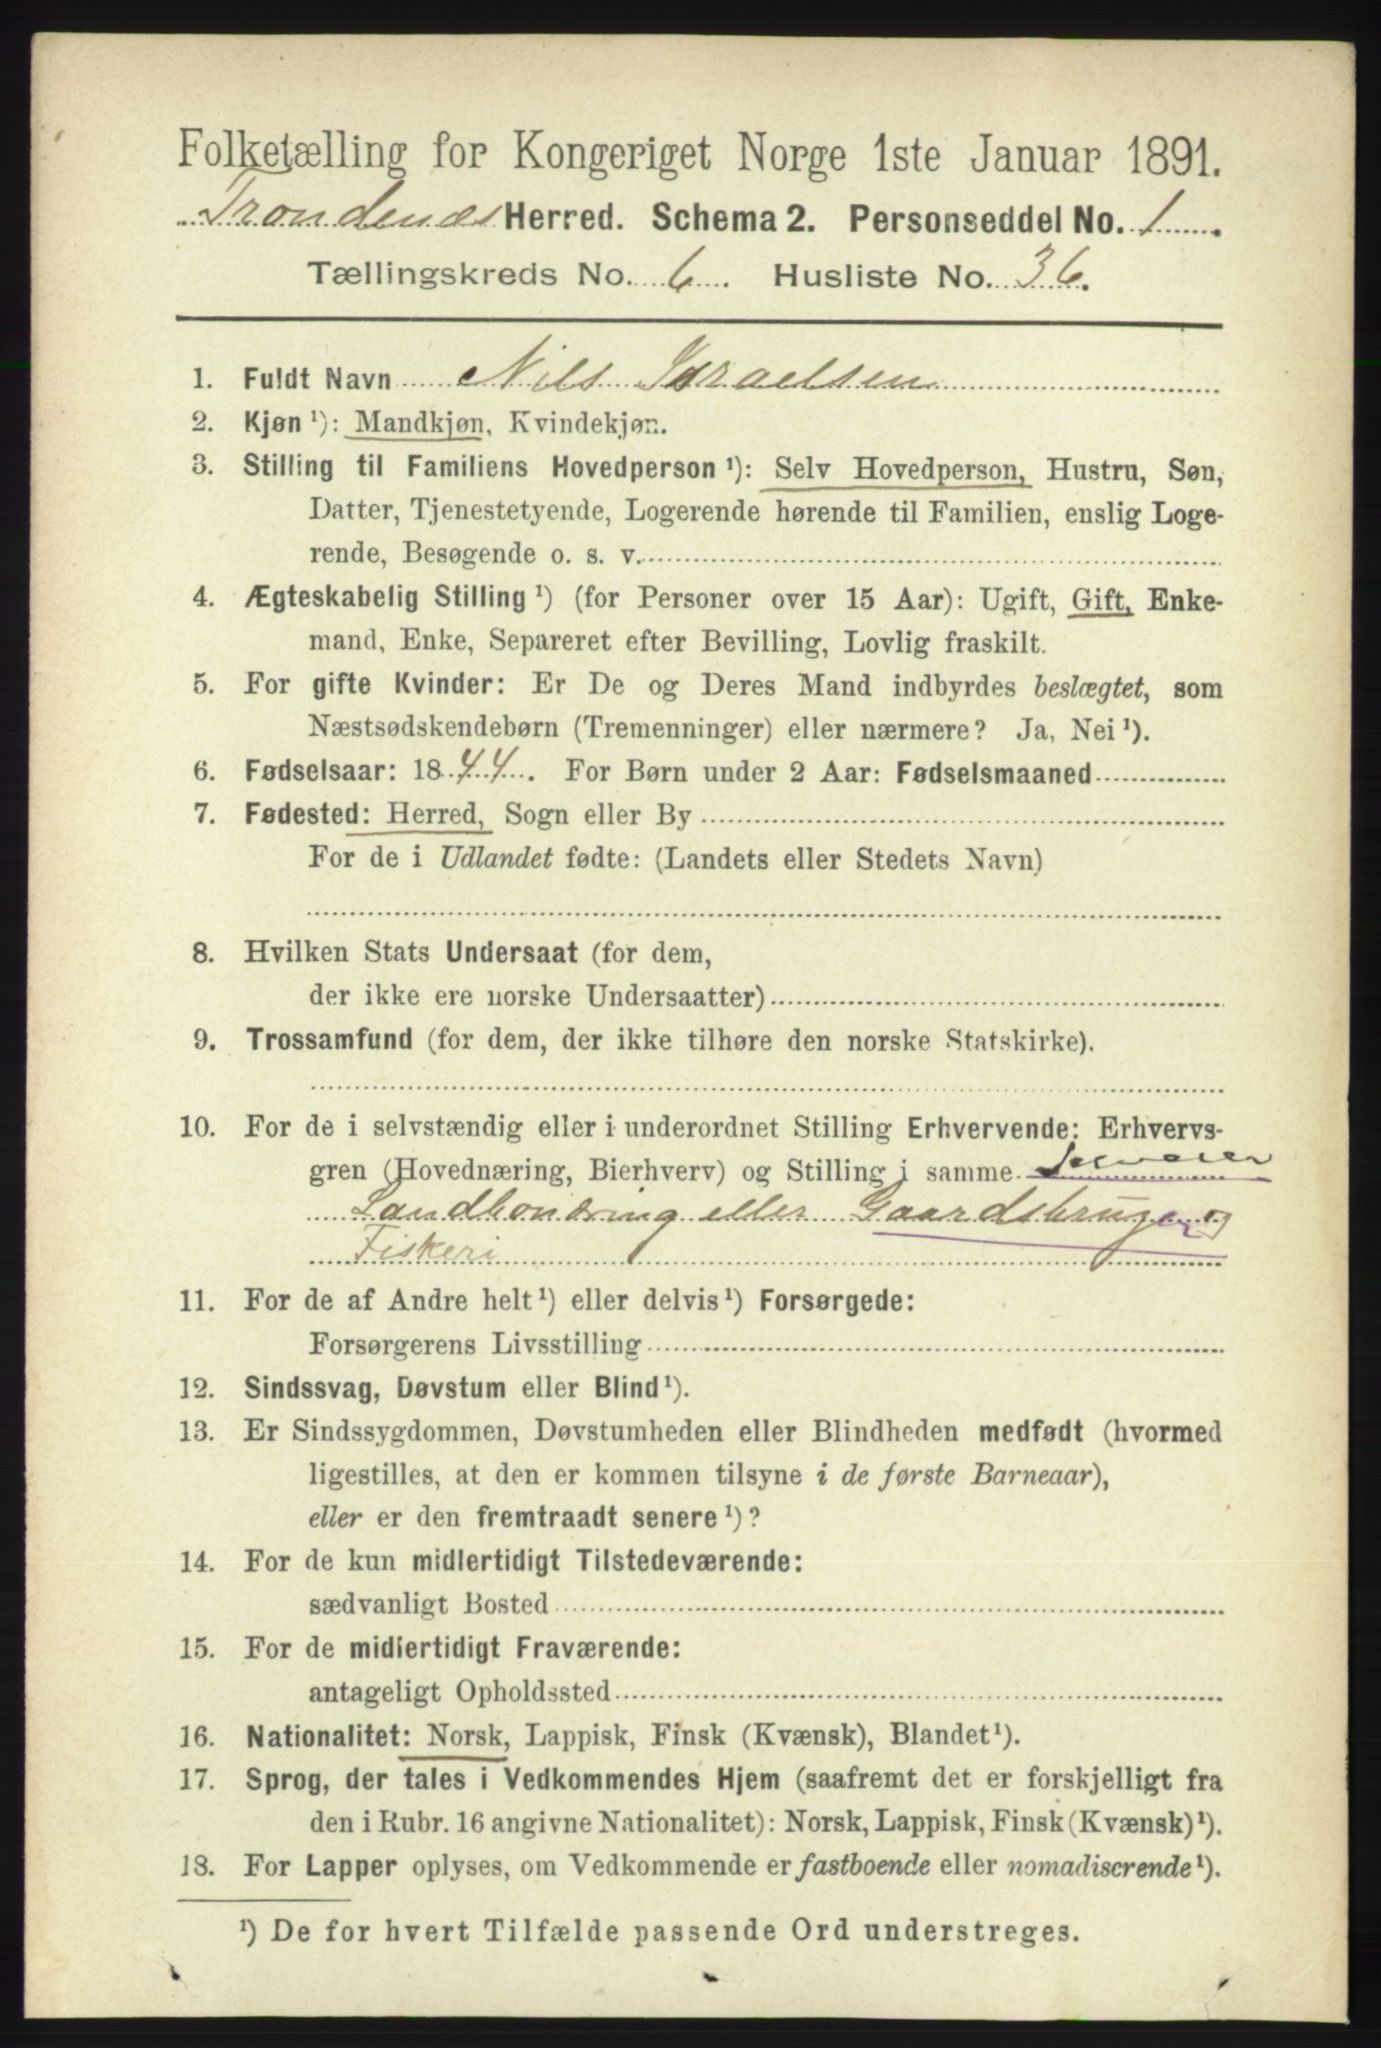 Folketælling for Kongeriget Norge 1ste Januar 1891.
Trondenæs Herred. Schema 2. Personseddel No. 1.
Tællingskreds No. 6. Husliste No. 36.
1. Fuldt Navn Nils Israelsen
2. Kjøn ¹): Mandkjøn, Kvindekjøn.
3. Stilling til Familiens Hovedperson ¹): Selv Hovedperson, Hustru, Søn,
Datter, Tjenestetyende, Logerende hørende til Familien, enslig Loge-
rende, Besøgende o. s. v.
4. Ægteskabelig Stilling ¹) (for Personer over 15 Aar): Ugift, Gift, Enke-
mand, Enke, Separeret efter Bevilling, Lovlig fraskilt.
5. For gifte Kvinder: Er De og Deres Mand indbyrdes beslægtet, som
Næstsødskendebørn (Tremenninger) eller nærmere? Ja, Nei ¹).
6. Fødselsaar: 1844. For Børn under 2 Aar: Fødselsmaaned
7. Fødested: Herred, Sogn eller By
For de i Udlandet fødte: (Landets eller Stedets Navn)
8. Hvilken Stats Undersaat (for dem,
der ikke ere norske Undersaatter)
9. Trossamfund (for dem, der ikke tilhøre den norske Statskirke).
10. For de i selvstændig eller i underordnet Stilling Erhvervende: Erhvervs-
gren (Hovednæring, Bierhverv) og Stilling i samme Selveier
Landhondring eller Gaardsbruger og
Fiskeri
11. For de af Andre helt ¹) eller delvis ¹) Forsørgede:
Forsørgerens Livsstilling
12. Sindssvag, Døvstum eller Blind ¹).
13. Er Sindssygdommen, Døvstumheden eller Blindheden medfødt (hvormed
ligestilles, at den er kommen tilsyne i de første Barneaar),
eller er den fremtraadt senere ¹)?
14. For de kun midlertidigt Tilstedeværende:
sædvanligt Bosted
15. For de midlertidigt Fraværende:
antageligt Opholdssted
16. Nationalitet: Norsk, Lappisk, Finsk (Kvænsk), Blandet ¹).
17. Sprog, der tales i Vedkommendes Hjem (saafremt det er forskjelligt fra
den i Rubr. 16 angivne Nationalitet): Norsk, Lappisk, Finsk (Kvænsk) ¹).
18. For Lapper oplyses, om Vedkommende er fastboende eller nomadiserende ¹).
¹) De for hvert Tilfælde passende Ord understreges.